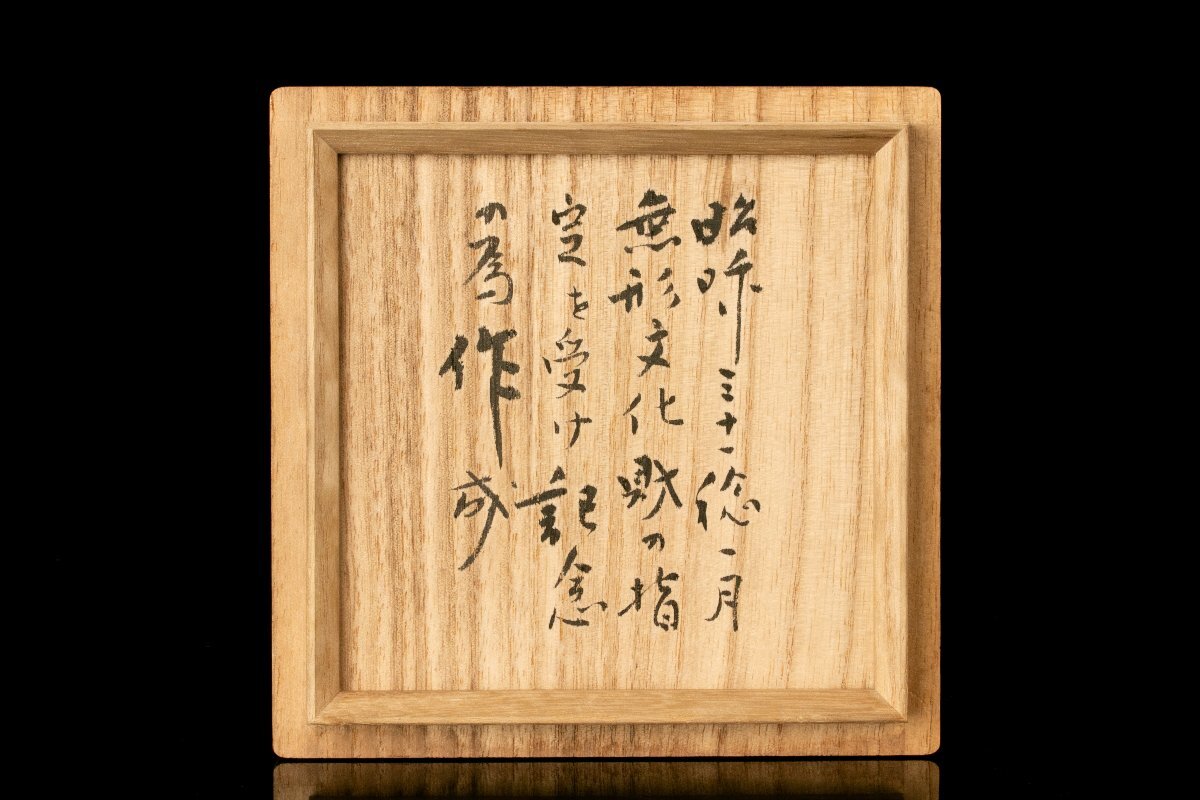 昭和三十一稔一月
無形文化財の指
定を受け記念
の為作成